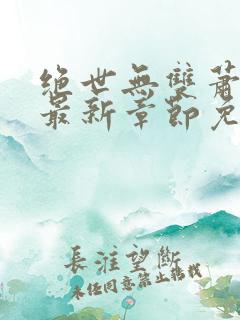 绝世無雙蕭
最新章節免
長淮望斷
未经同意禁止转载